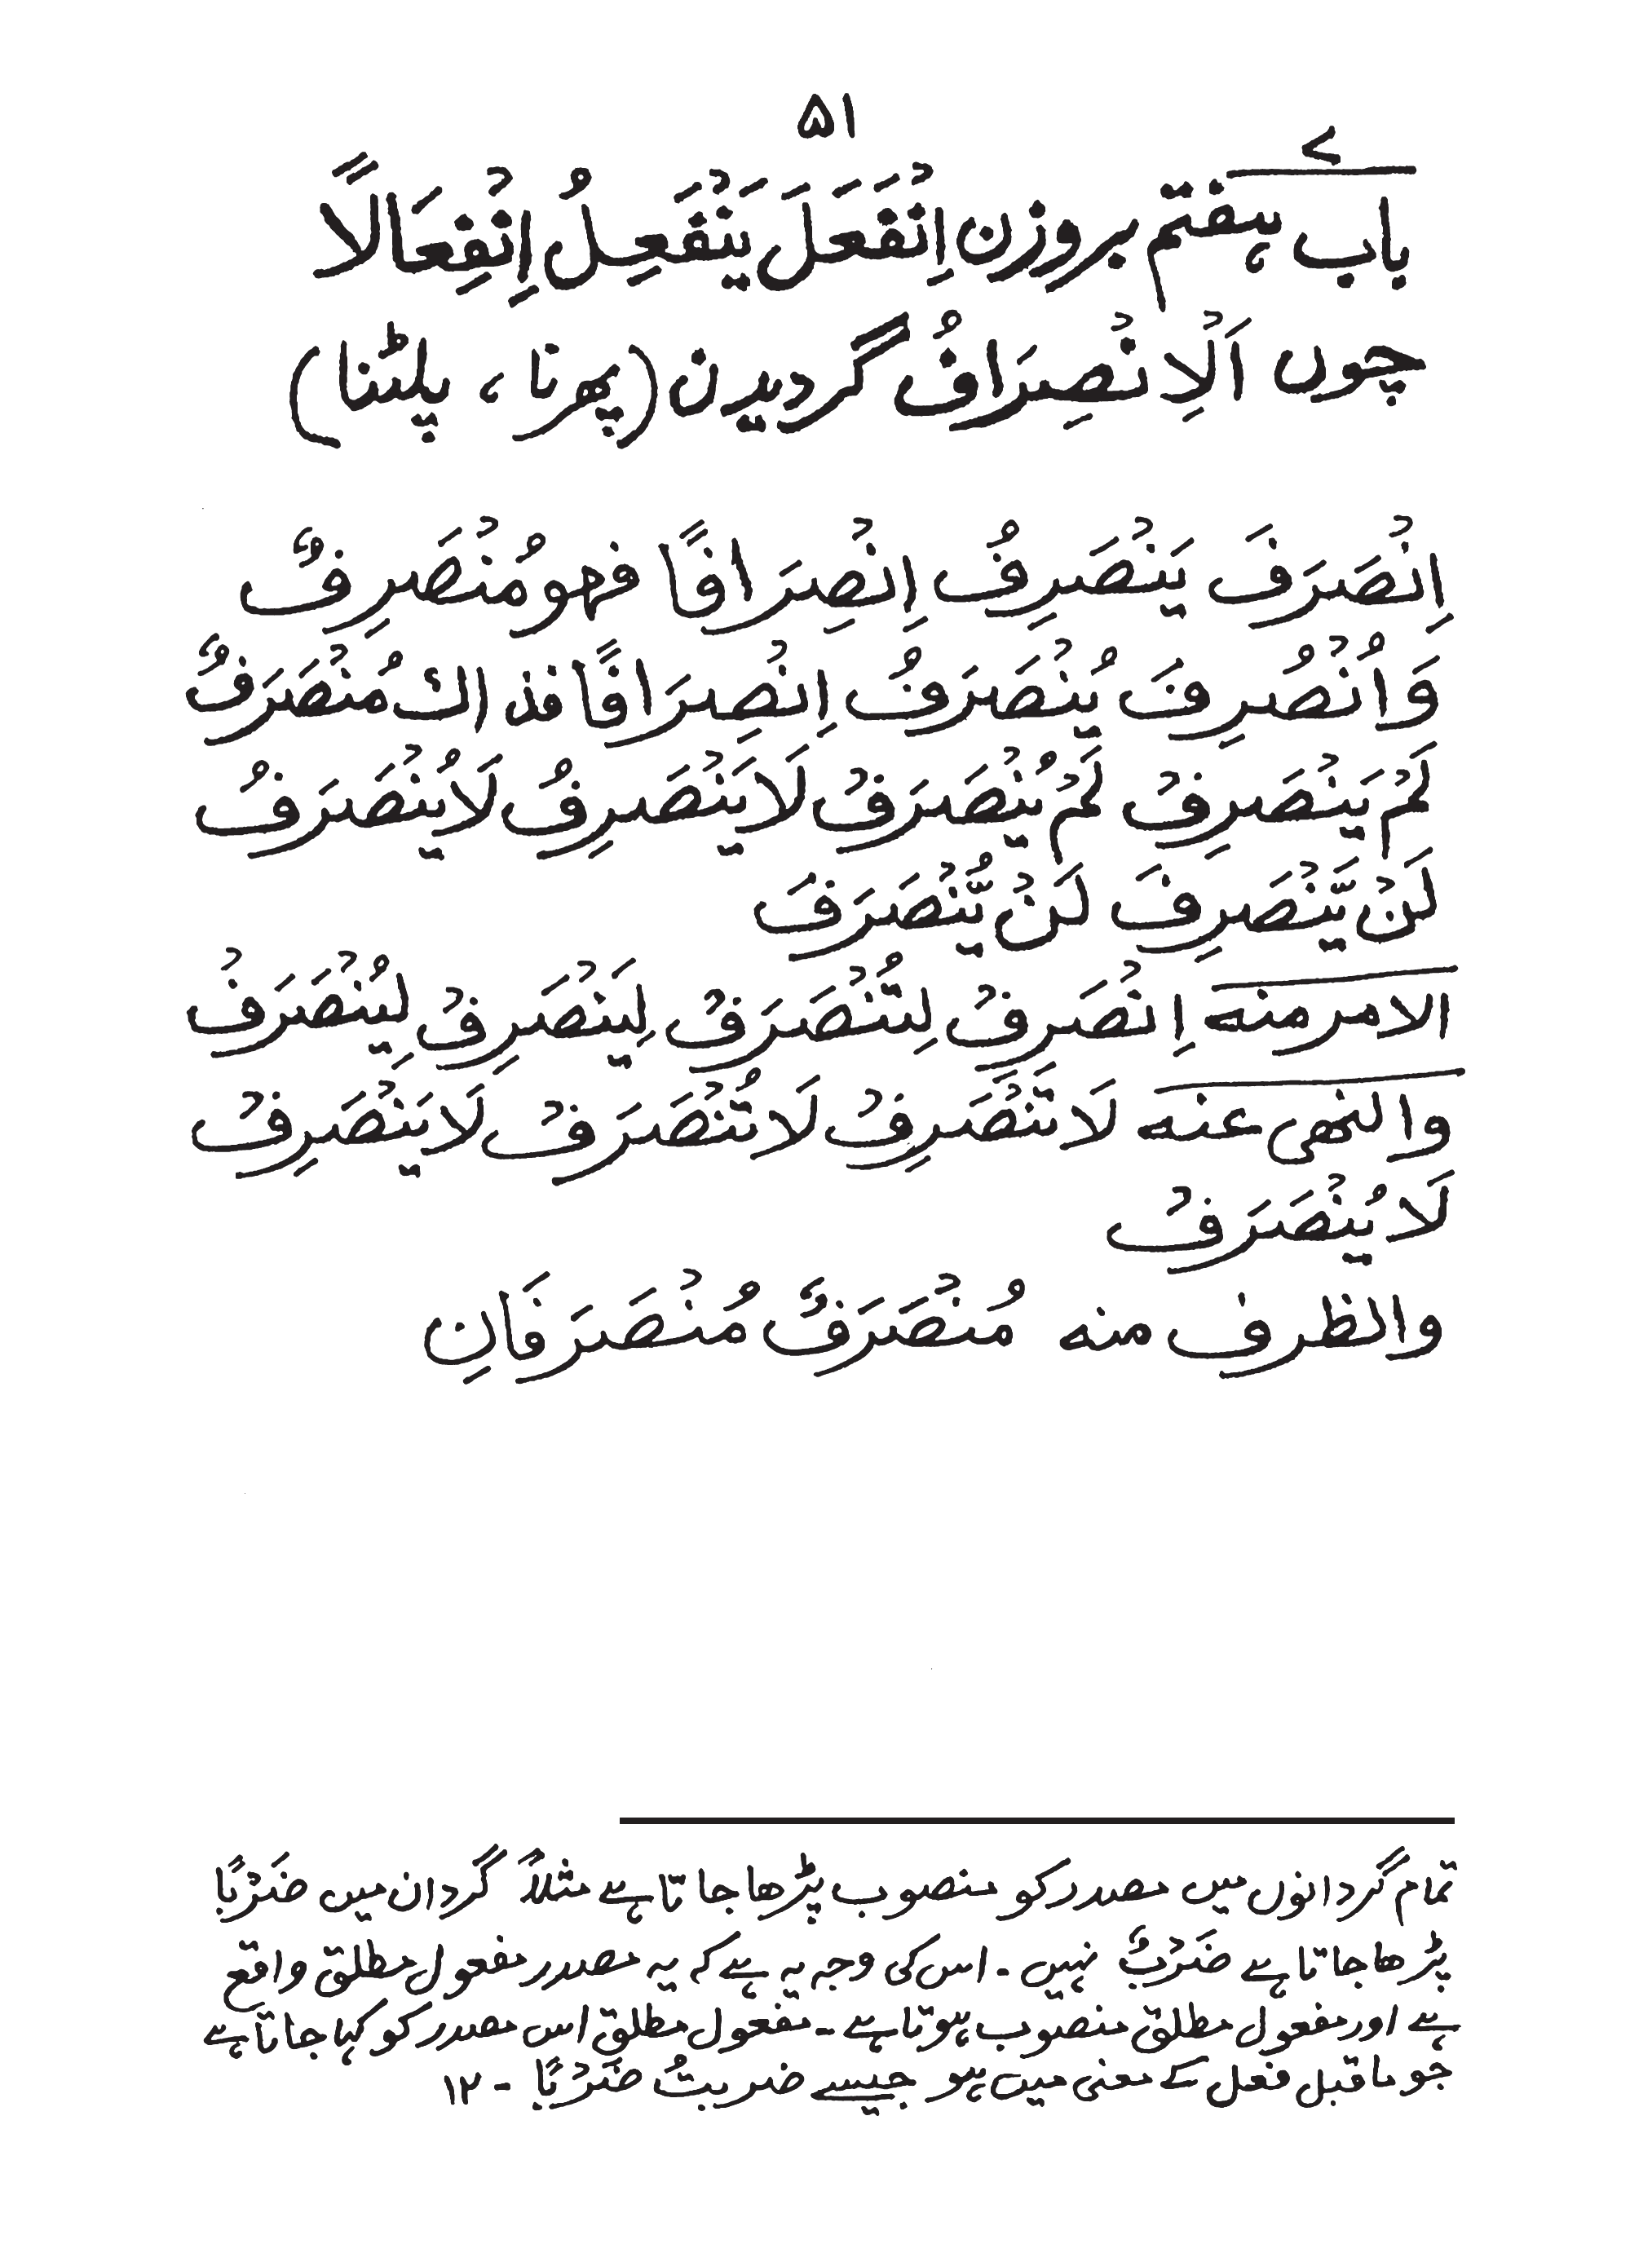 ۵۱
۷
باب ہفتم بروزن اِنْفَعَلَ يَنْفَعِلُ اِنْفِعَالاً
چوں اَلْاِنْصِرَافُ گردیدن (پھرنا ، پلٹنا)
اِنْصَرَفَ يَنْصَرِفُ اِنْصِرَافًا فهو مُنْصَرِفٌ
وَاُنْصُرِفَ يُنْصَرَفُ اِنْصِرَافًا فذاك مُنْصَرَفٌ
لَمْ يَنْصَرِفْ لَمْ يُنْصَرَفْ لَا يَنْصَرِفُ لَا يُنْصَرَفُ
لَنْ يَّنْصَرِفَ لَنْ يُّنْصَرَفَ
الامر منه اِنْصَرِفْ لِتُنْصَرَفْ لِيَنْصَرِفْ لِيُنْصَرَفْ
والنهى عنه لَا تَنْصَرِفْ لَا تُنْصَرَفْ لَا يَنْصَرِفْ
لَا يُنْصَرَفْ
والظرف منه مُنْصَرَفٌ مُنْصَرَفَانِ
تمام گردانوں میں مصدر کو منصوب پڑھا جاتا ہے مثلاً گردان میں ضَرْبًا
پڑھا جاتا ہے ضَرْبٌ نہیں ۔ اس کی وجہ یہ ہے کہ یہ مصدر مفعول مطلق واقع
ہے اور مفعول مطلق منصوب ہوتا ہے ۔ مفعول مطلق اس مصدر کو کہا جاتا ہے
جو ماقبل فعل کے معنی میں ہو جیسے ضربتُ ضَرْبًا ۔ ۱۲